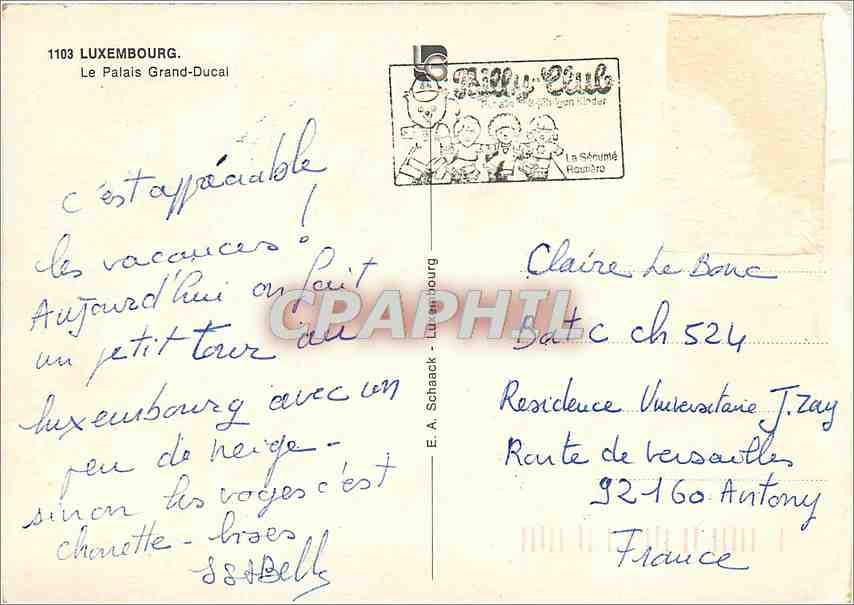 1103 LUXEMBOURG.
Le Palais Grand-Ducal
Billy-Club
Kinder
La Sécurité
Routière
c'est appréciable
les vacances !
Aujourd'hui on fait
un petit tour au
luxembourg avec un
peu de neige -
sinon les voges c'est
chouette - bises
E. A. Schaack - Luxembourg
CPAPHIL
Claire Le Bonc
Bat C ch 524
Residence Universitaire J. Zay
Route de versailles
92160 Antony
France